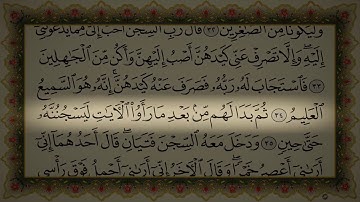 وليكونا من الصغرين ٣٢ قال رب السجن أحب إلي مما يدعونني
إليه وإلا تصرف عني كيدهن أصب إليهن وأكن من الجهلين
٣٣ فاستجاب له ربه فصرف عنه كيدهن إنه هو السميع
العليم ٣٤ ثم بدا لهم من بعد ما رأوا الأيت ليسجننه
حتى حين ٣٥ ودخل معه السجن فتيان قال أحدهما إني
أرىني أعصر خمرا وقال الأخر إني أرىني أحمل فوق رأسي